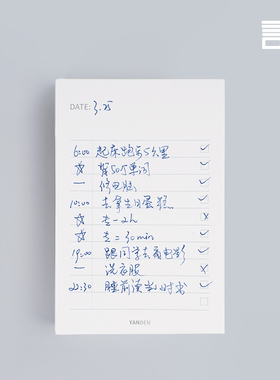 DATE: 3.25
6:00 起床跑步5公里
☆ 背50个单词
一 修电脑
10:00 去拿生日蛋糕
☆ 去一2h
☆ 去二30min
19:00 跟同学去看电影
一 洗衣服
22:30 睡前读半小时书
YANDEN